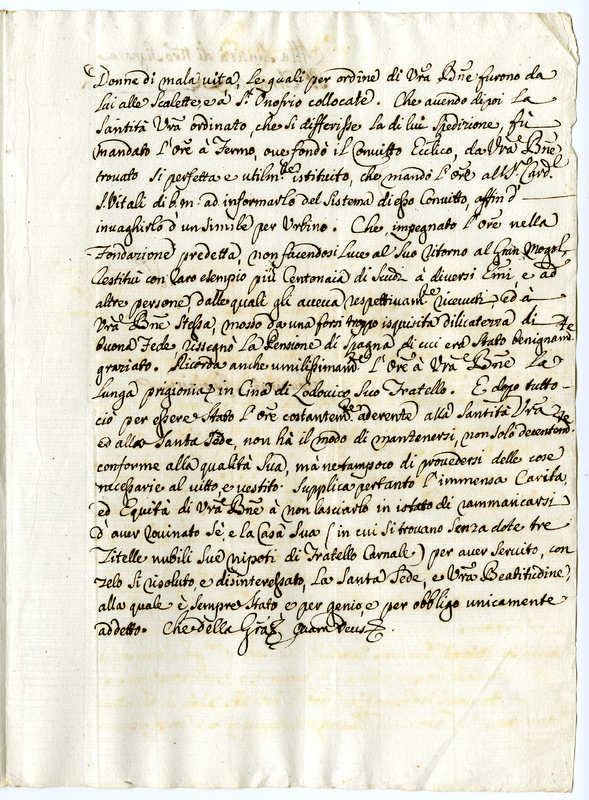 Donne di mala vita, le quali per ordine di Vrã Bñe furono da
lui alle Scalette, e a S. Onofrio collocate. Che avendo dipoi La
Santità Vrã ordinato, che si differisse la di lui Spedizione, fù
mandato l'Orẽ à Fermo, ove fondò il Convitto Ecclico, da Vrã Bñe
trovato si perfetta e utilmte istituito, che mandò l'Orẽ all Sr Cardl
S. Vitali di b. m: ad informarlo del Sistema di esso Convitto, affin d'
invaghirlo d'un simile per Urbino. Che, impegnato l'Orẽ nella
Fondazione predetta, non facendosi luce al suo ritorno al Gran Mogol,
restituì con raro esempio più Centonaia di Scudi à diversi Emĩ e ad
altre persone, dalle quali gli aveva respettivamte ricevuti, ed à
Vrã Bñe stessa, mosso da una forsi troppo isquisita dilicatezza di
buona Fede rissegnò la Pensione di Spagna di cui era Stato benignamte
graziato. Ricorda anche umilissimamte l'Orẽ à Vrã Bñe La
lunga prigionia in Cina di Lodovico Suo Fratello. E dopo tutto
ciò per essere Stato l'Orẽ costantemte aderente alla Santità Vrã
ed alla Santa Sede, non hà il modo di mantenersi, non solo decentemte
conforme alla qualità Sua, mà ne tampoco di provedersi delle cose
necessarie al vitto, e vestito. Supplica pertanto l'immensa Carità,
ed Equità di Vrã Bñe à non lasciarlo in istato di rammaricarsi
d'aver rovinato Sè, e la Casa Sua (in cui si trovano Senza dote tre
Zitelle nubili Sue nipoti di Fratello Carnale) per aver Servito, con
zelo Si risoluto, e disinteressato, La Santa Sede, e Vrã Beatitudine,
alla quale è sempre Stato e per genio, e per obbligo unicamente
addetto. Che della Grã Quam Deus